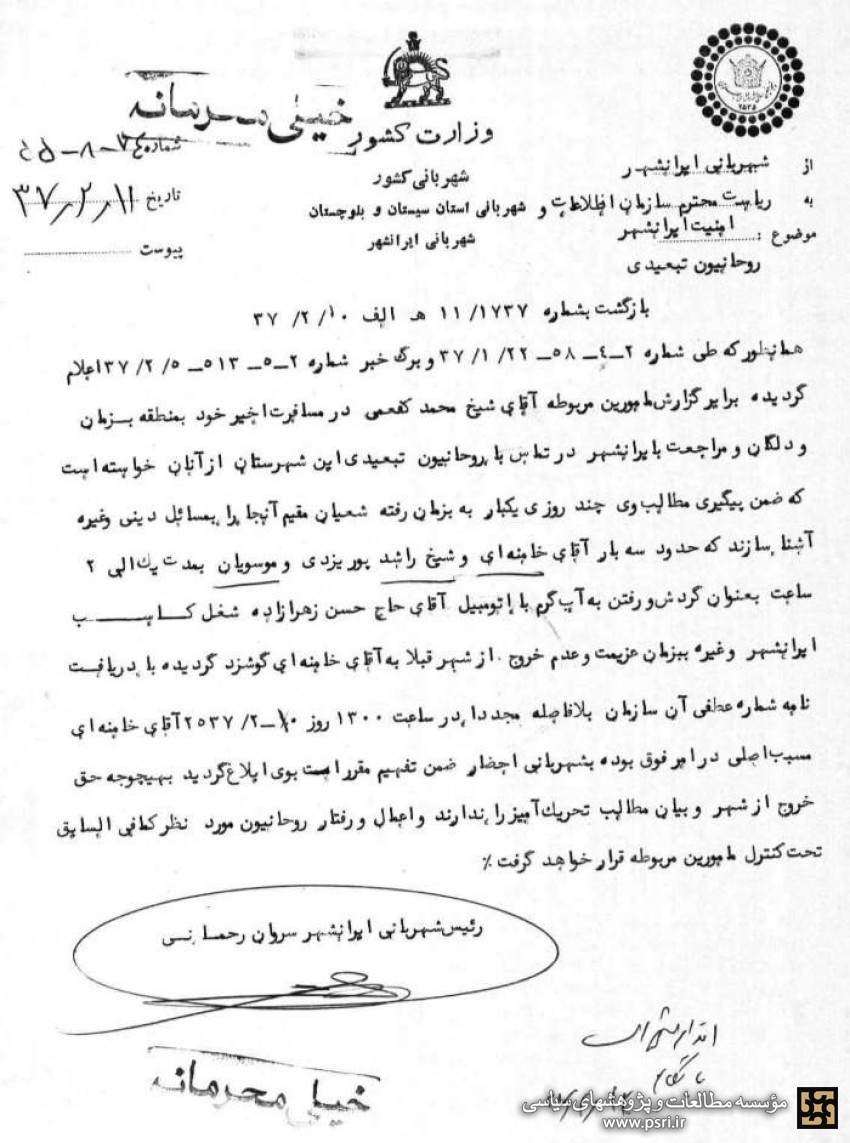 خیلی محرمانه
وزارت کشور
شهربانی کشور
شهربانی استان سیستان و بلوچستان
شهربانی ایرانشهر
۲۵۳۵
از شهربانی ایرانشهر
به ریاست محترم سازمان اطلاعات و
امنیت ایرانشهر
موضوع : روحانیون تبعیدی
شماره
تاریخ ۳۷/۲/۱۱
پیوست
بازگشت بشماره ۱۱/۱۷۳۷ هـ الف ۳۷/۲/۱۰
همانطور که طی شماره ۲-۴-۵۸-۳۷/۱/۲۲ و برگ خبر شماره ۲-۵-۵۱۳-۳۷/۲/۵ اعلام
گردیده برابر گزارش مامورین مربوطه آقای شیخ محمد کفعمی در مسافرت اخیر خود بمنطقه بزمان
و دلگان و مراجعت بایرانشهر در تماس با روحانیون تبعیدی این شهرستان از آنان خواسته است
که ضمن پیگیری مطالب وی چند روزی یکبار به بزمان رفته شعیان مقیم آنجا را بمسائل دینی و غیره
آشنا سازند که حدود سه بار آقای خامنه ای و شیخ راشد پور یزدی و موسویان بمدت یک الی ۲
ساعت بعنوان گردش و رفتن به آب گرم با اتومبیل آقای حاج حسن زهرازاده شغل کاسب
ایرانشهر و غیره ببزمان عزیمت و عدم خروج از شهر قبلا به آقای خامنه ای گوشزد گردیده با دریافت
نامه شماره عطفی آن سازمان بلافاصله مجددا در ساعت ۱۳۰۰ روز ۱۰-۲۵۳۷/۲ آقای خامنه ای
مسبب اصلی در امر فوق بوده بشهربانی احضار ضمن تفهیم مقررات بوی ابلاغ گردید بهیچوجه حق
خروج از شهر و بیان مطالب تحریک آمیز را ندارند و اعمال و رفتار روحانیون مورد نظر کمافی السابق
تحت کنترل مامورین مربوطه قرار خواهد گرفت ٪
رئیس شهربانی ایرانشهر سروان رحمانی
خیلی محرمانه
مؤسسه مطالعات و پژوهشهای سیاسی
www.psri.ir